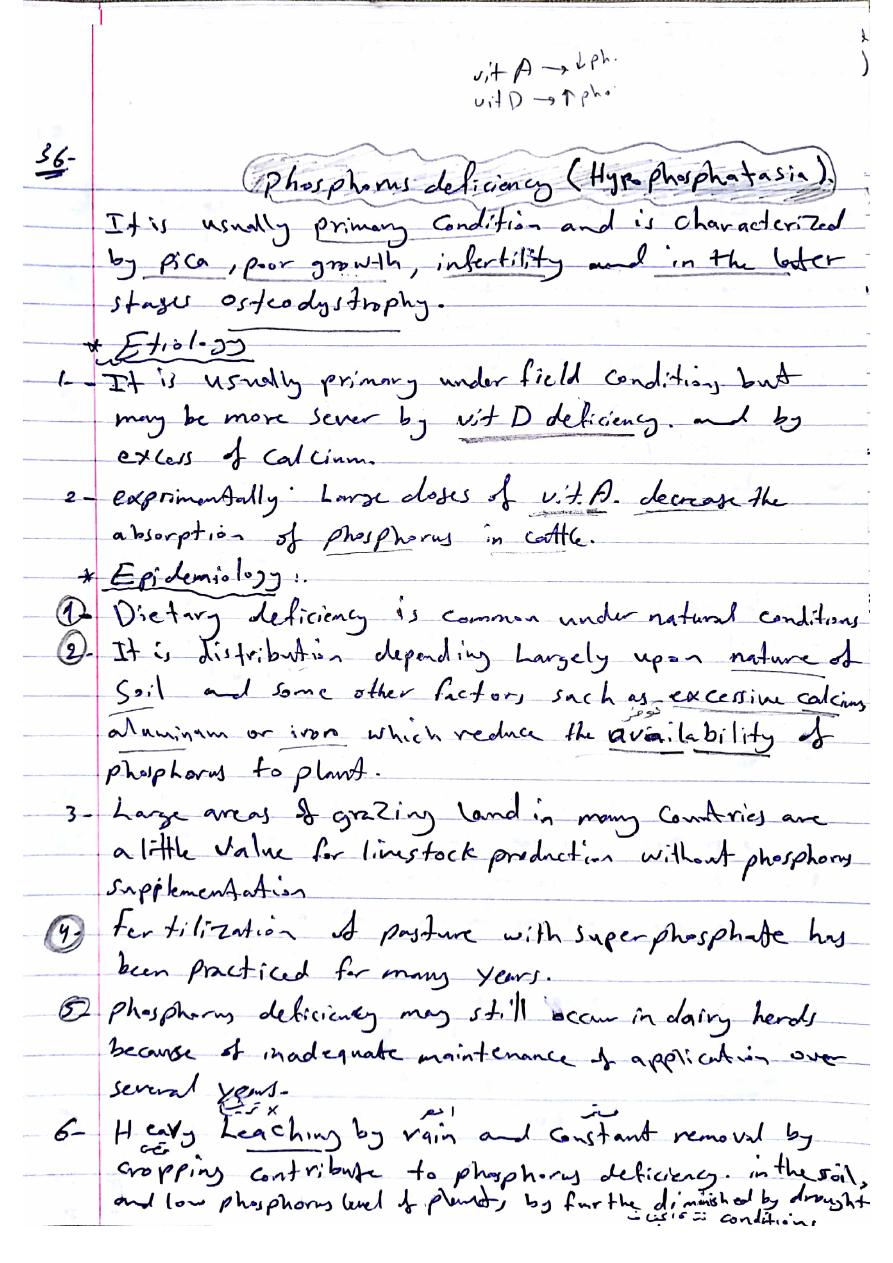 vit A → ↓ ph.
vit D → ↑ pho.
36-
phosphorus deficiency (Hypophosphatasia).
It is usually primary Condition and is characterized
by pica, poor growth, infertility and in the later
stages osteodystrophy.
* Etiology
1- - It is usually primary under field conditions but
may be more sever by vit D deficiency. and by
excess of calcium.
2- exprimentally. Large doses of vit. A. decrease the
absorption of phosphorus in cattle.
* Epidemiology:.
1- Dietary deficiency is common under natural conditions
2- It is distribution depending Largely upon nature of
Soil and some other factors such as excessive calcium,
توفر
aluminum or iron which reduce the availability of
phosphorus to plant.
3- Large areas of grazing land in many Countries are
a little value for livestock production without phosphorus
supplementation
4- Fertilization of pasture with superphosphate has
been practiced for many years.
5- phosphorus deficiency may still occur in dairy herds
because of inadequate maintenance of application over
several years.
6- Heavy Leaching by rain and constant removal by
cropping contribute to phosphorus deficiency. in the soil,
and low phosphorus level of plants, by furthe diminished by drought
conditions